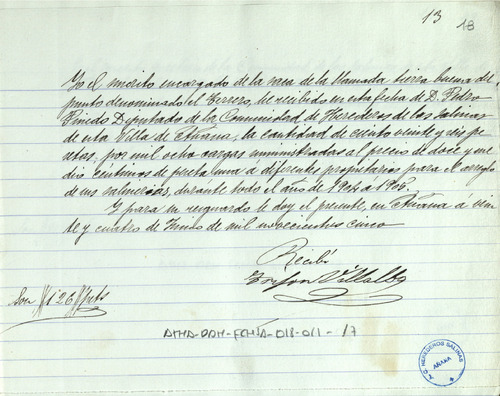 13 18
Yo el inscrito encargado de la saca de la llamada tierra buena del
punto denominado el Terrero, he recibido en esta fecha de D. Pedro
Pinedo Diputado de la Comunidad de Herederos de las Salinas
de esta Villa de Añana, la cantidad de ciento veinte y seis pe
setas, por mil ocho cargas suministradas al precio de doce y me
dio céntimos de peseta una a diferentes propietarios para el arreglo
de sus salmueras, durante todo el año de 1904 a 1905.
Y para su resguardo le doy el presente, en Añana a vein
te y cuatro de Enero de mil novecientos cinco
Recibí
Villalba
Son 126 Pts
ATHA-DAH-FCHSA-018-011-17
C. HEREDEROS SALINAS
AÑANA